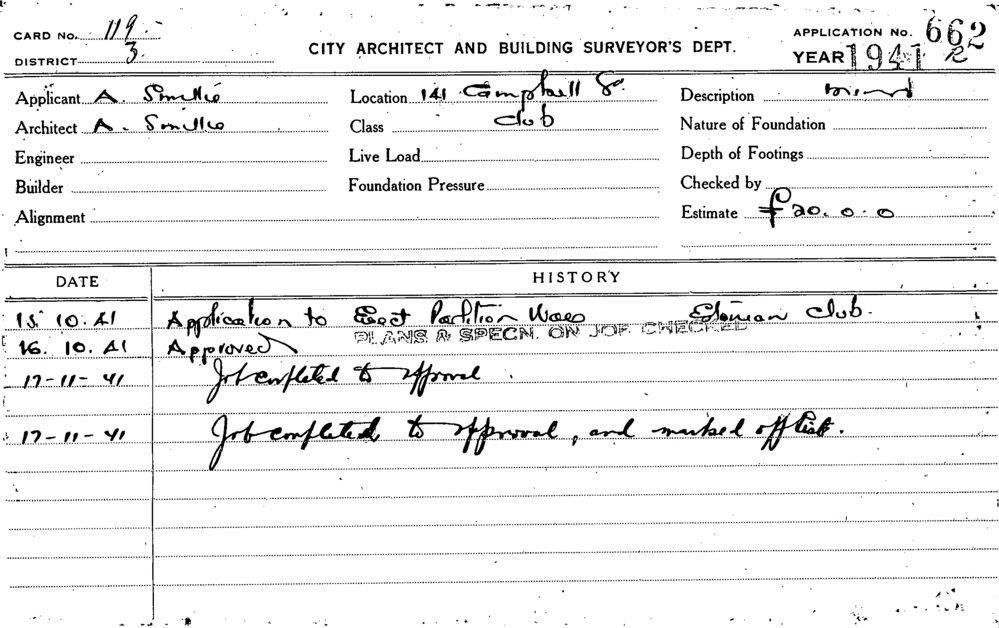 CARD No. 119
DISTRICT 3
CITY ARCHITECT AND BUILDING SURVEYOR'S DEPT.
APPLICATION No. 662
YEAR 1941 R
Applicant A. Smillie
Location 141 Campbell St
Description
Architect A. Smillie
Class Club
Nature of Foundation
Engineer
Live Load
Depth of Footings
Builder
Foundation Pressure
Checked by
Alignment
Estimate £20.0.0
DATE HISTORY
15.10.41 Application to Erect Partition Estonian Club.
16.10.41 Approved PLANS & SPECN. ON JOB CHECKED
17-11-41 Job completed to approval.
17-11-41 Job completed to approval, and marked off list.